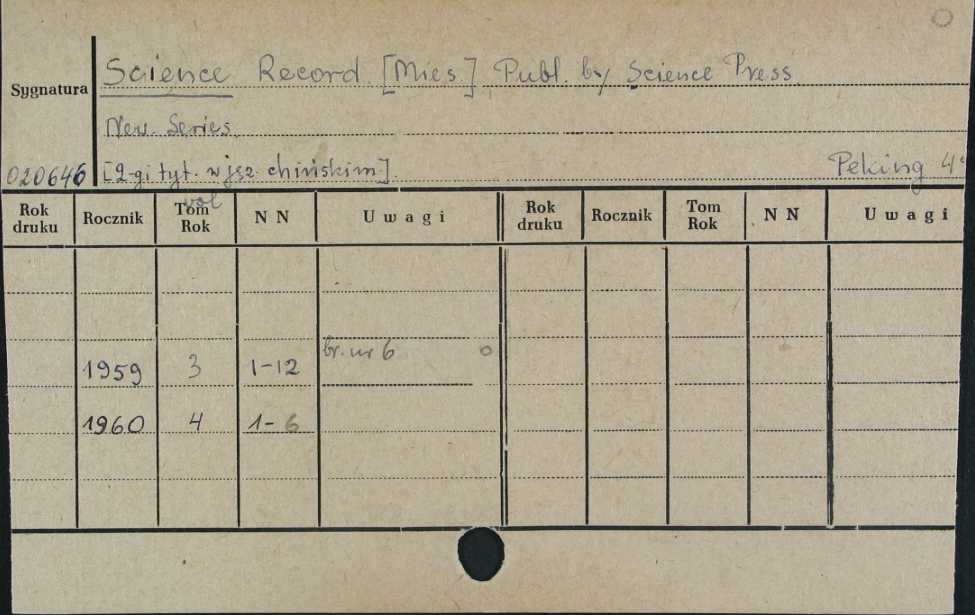 Science Record [Mies.] Publ. by Science Press
Sygnatura
New. Series.
020646 [2-gi tyt. w jęz. chińskim]. Peking 4°
Rok druku Rocznik Tom Rok vol N N Uwagi Rok druku Rocznik Tom Rok N N Uwagi
br. nr 6
1959 3 1-12
1960 4 1-6